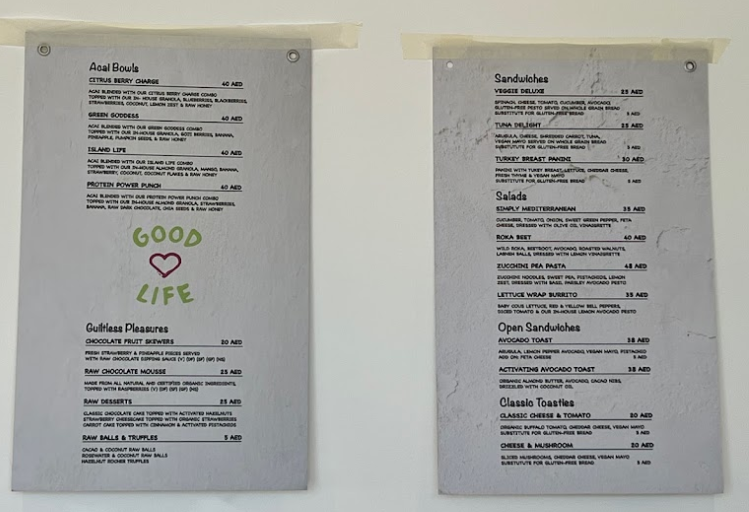 Acai Bowls
CITRUS BERRY CHARGE 40 AED
ACAI BLENDED WITH OUR CITRUS BERRY CHARGE COMBO
TOPPED WITH OUR IN-HOUSE GRANOLA, BLUEBERRIES, BLACKBERRIES,
STRAWBERRIES, COCONUT, LEMON ZEST & RAW HONEY
GREEN GODDESS 40 AED
ACAI BLENDED WITH OUR GREEN GODDESS COMBO
TOPPED WITH OUR IN-HOUSE GRANOLA, GOJI BERRIES, BANANA,
PINEAPPLE, PUMPKIN SEEDS, & RAW HONEY
ISLAND LIFE 40 AED
ACAI BLENDED WITH OUR ISLAND LIFE COMBO
TOPPED WITH OUR IN-HOUSE ALMOND GRANOLA, MANGO, BANANA,
STRAWBERRY, COCONUT, COCONUT FLAKES & RAW HONEY
PROTEIN POWER PUNCH 40 AED
ACAI BLENDED WITH OUR PROTEIN POWER PUNCH COMBO
TOPPED WITH OUR IN-HOUSE ALMOND GRANOLA, STRAWBERRIES,
BANANA, RAW DARK CHOCOLATE, CHIA SEEDS & RAW HONEY
GOOD
LIFE
Guiltless Pleasures
CHOCOLATE FRUIT SKEWERS 20 AED
FRESH STRAWBERRY & PINEAPPLE PIECES SERVED
WITH RAW CHOCOLATE DIPPING SAUCE
RAW CHOCOLATE MOUSSE 25 AED
MADE FROM ALL NATURAL AND CERTIFIED ORGANIC INGREDIENTS,
TOPPED WITH RASPBERRIES
RAW DESSERTS 25 AED
CLASSIC CHOCOLATE CAKE TOPPED WITH ACTIVATED HAZELNUTS
STRAWBERRY CHEESECAKE TOPPED WITH ORGANIC STRAWBERRIES
CARROT CAKE TOPPED WITH CINNAMON & ACTIVATED PISTACHIOS
RAW BALLS & TRUFFLES 5 AED
CACAO & COCONUT RAW BALLS
ROSEWATER & COCONUT RAW BALLS
HAZELNUT ROCHER TRUFFLES
Sandwiches
VEGGIE DELUXE 25 AED
SPINACH, CHEESE, TOMATO, CUCUMBER, AVOCADO,
GLUTEN-FREE PESTO SERVED ON WHOLE GRAIN BREAD
SUBSTITUTE FOR GLUTEN-FREE BREAD 5 AED
TUNA DELIGHT 25 AED
ARUGULA, CHEESE, SHREDDED CARROT, TUNA,
VEGAN MAYO SERVED ON WHOLE GRAIN BREAD
SUBSTITUTE FOR GLUTEN-FREE BREAD 5 AED
TURKEY BREAST PANINI 30 AED
PANINI WITH TUKEY BREAST, LETTUCE, CHEDDAR CHEESE,
FRESH THYME & VEGAN MAYO
SUBSTITUTE FOR GLUTEN-FREE BREAD 5 AED
Salads
SIMPLY MEDITERRANEAN 35 AED
CUCUMBER, TOMATO, ONION, SWEET GREEN PEPPER, FETA
CHEESE, DRESSED WITH OLIVE OIL VINAIGRETTE
ROKA BEET 40 AED
WILD ROKA, BEETROOT, AVOCADO, ROASTED WALNUTS,
LABNEH BALLS, DRESSED WITH LEMON VINAIGRETTE
ZUCCHINI PEA PASTA 48 AED
ZUCCHINI NOODLES, SWEET PEA, PISTACHIOS, LEMON
ZEST, DRESSED WITH BASIL PARSLEY AVOCADO PESTO
LETTUCE WRAP BURRITO 35 AED
BABY COUS LETTUCE, RED & YELLOW BELL PEPPERS,
DICED TOMATO & OUR IN-HOUSE LEMON AVOCADO PESTO
Open Sandwiches
AVOCADO TOAST 38 AED
ARUGULA, LEMON PEPPER AVOCADO, VEGAN MAYO, PISTACHIO
ADD ON FETA CHEESE 5 AED
ACTIVATING AVOCADO TOAST 38 AED
ORGANIC ALMOND BUTTER, AVOCADO, CACAO NIBS,
DRIZZLED WITH COCONUT OIL
Classic Toasties
CLASSIC CHEESE & TOMATO 20 AED
ORGANIC BUFFALO TOMATO, CHEDDAR CHEESE, VEGAN MAYO
SUBSTITUTE FOR GLUTEN-FREE BREAD 5 AED
CHEESE & MUSHROOM 20 AED
SLICED MUSHROOMS, CHEDDAR CHEESE, VEGAN MAYO
SUBSTYUTE FOR GLUTEN-FREE BREAD 5 AED